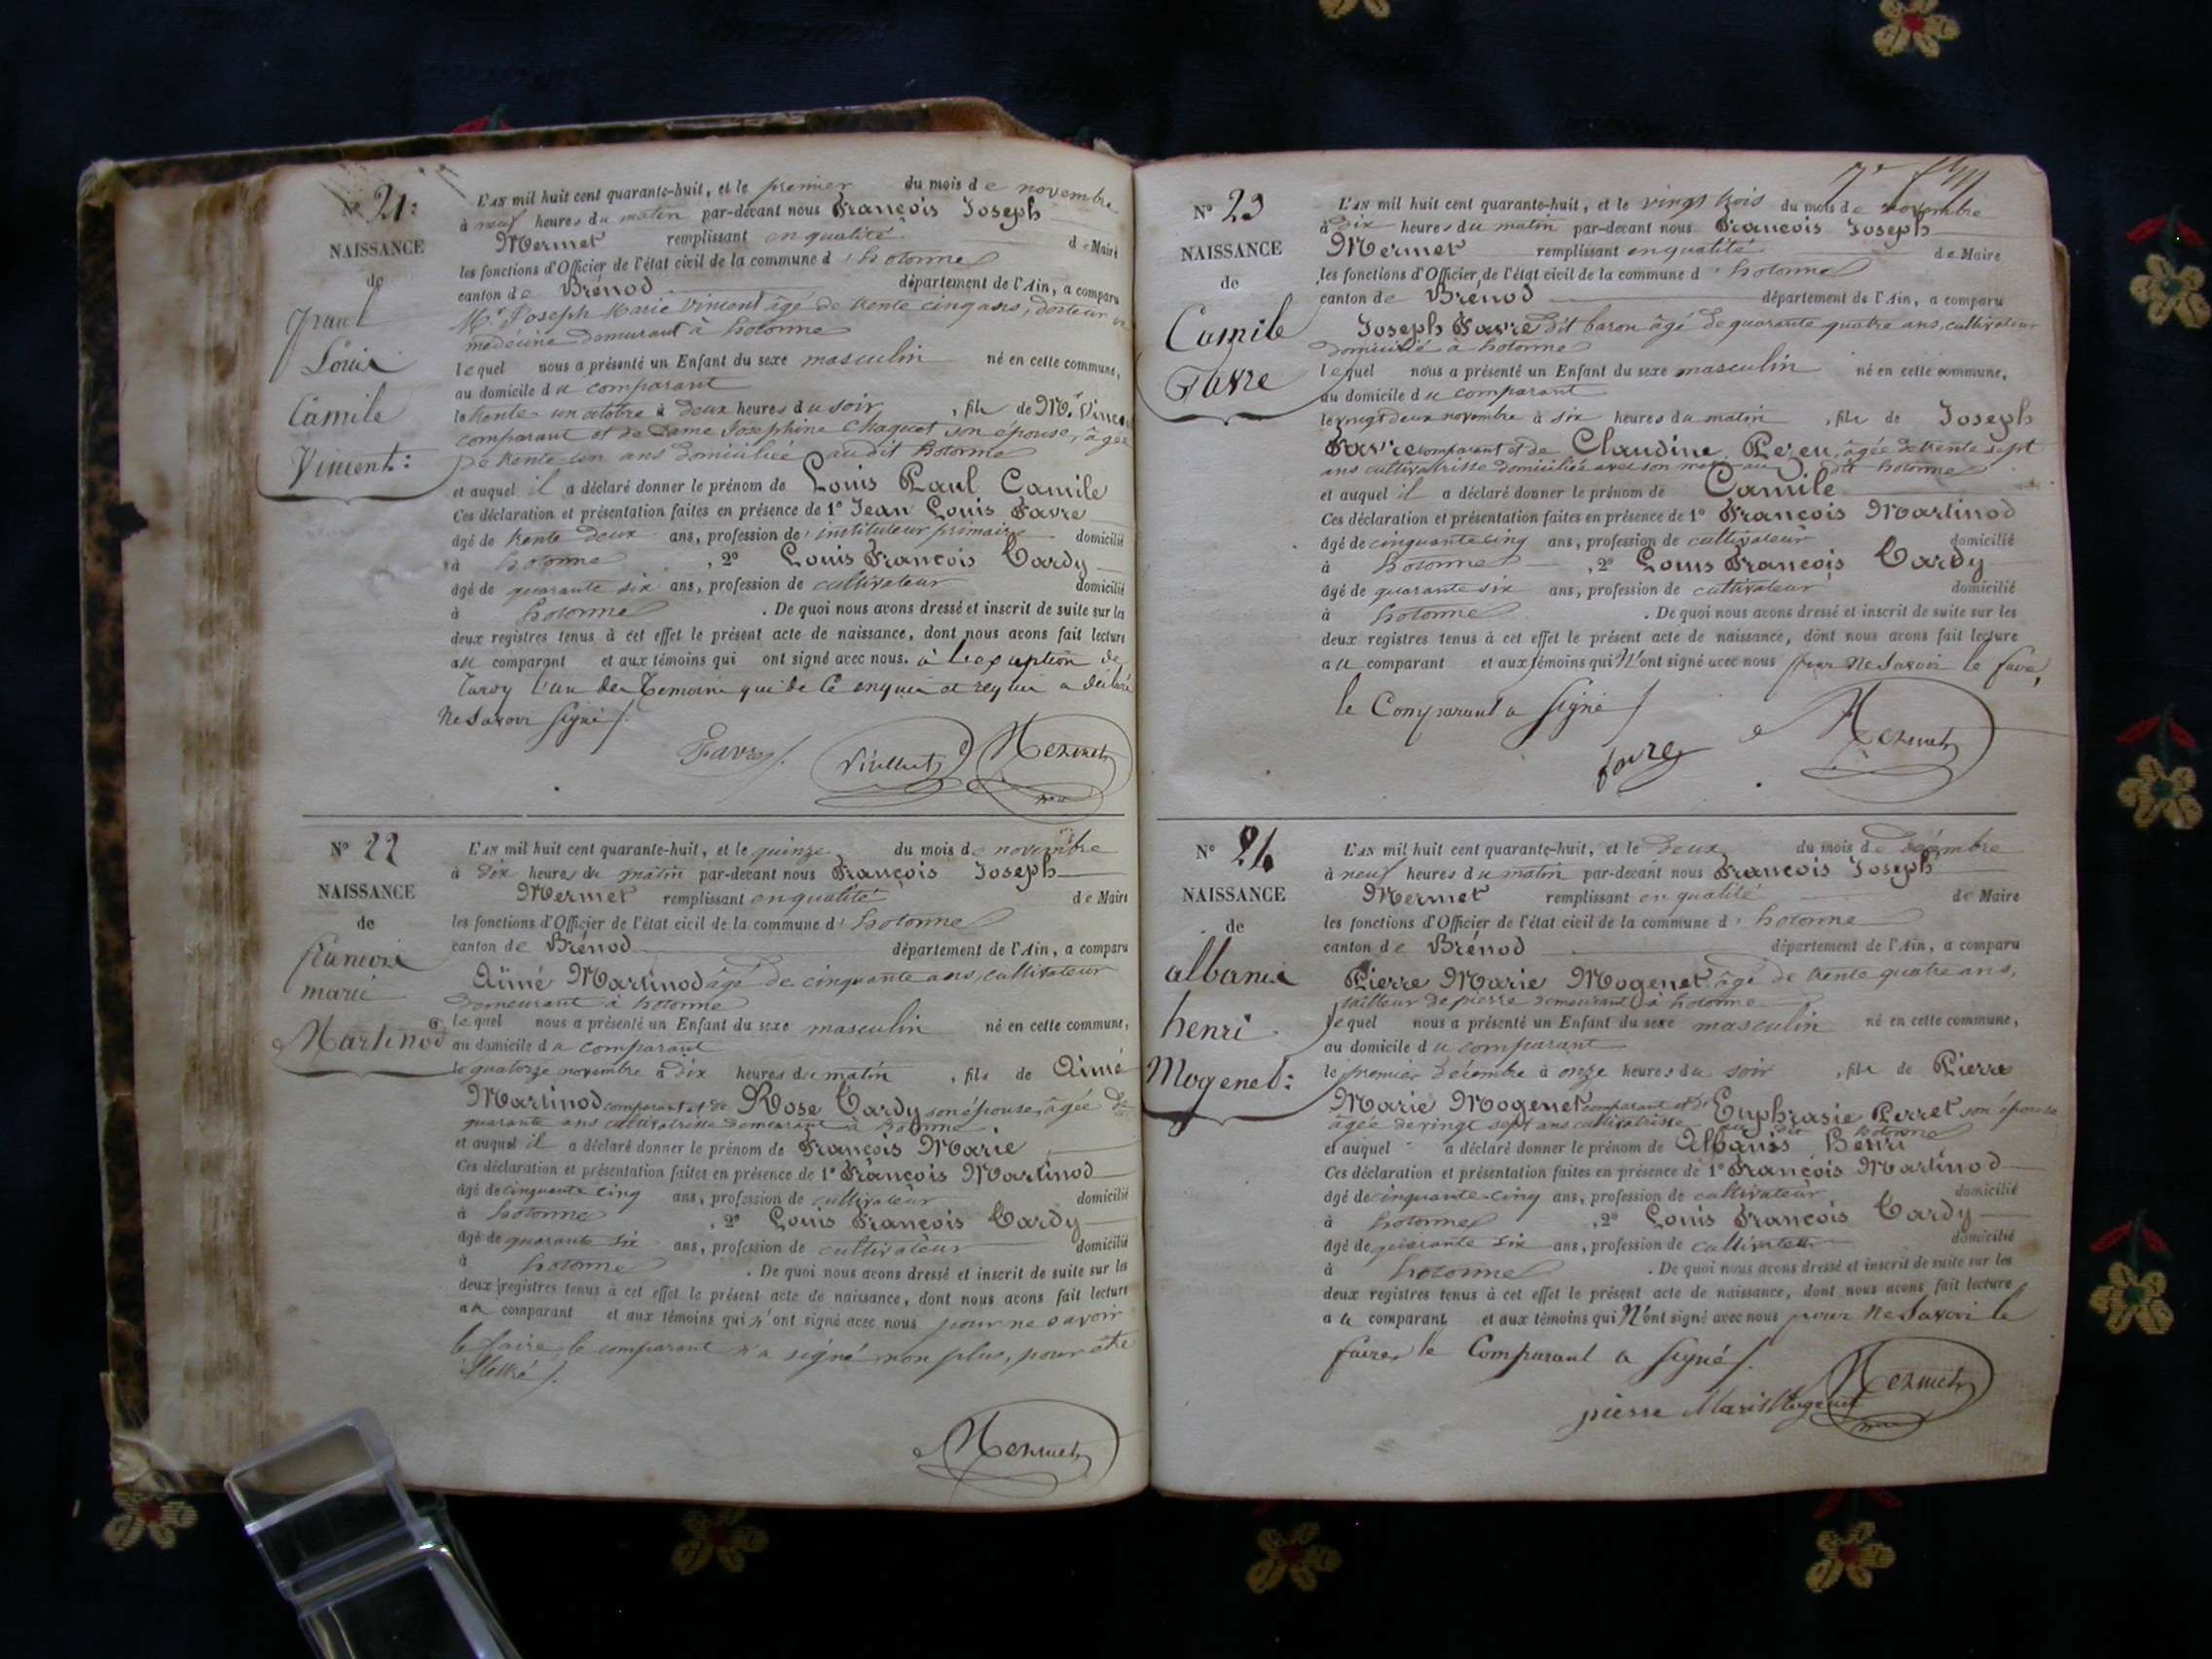 Nº 21:
NAISSANCE
de
Paul
Louis
Camile
Vincent:
L'AN mil huit cent quarante-huit, et le premier du mois de novembre
à neuf heures du matin par-devant nous François Joseph
Mermet remplissant en qualité de Maire
les fonctions d'Officier de l'état civil de la commune d'hotonne
canton de Brénod département de l'Ain, a comparu
Mr. Joseph Marie Vincent âgé de trente cinq ans, docteur en
medecine demeurant à hotonne
lequel nous a présenté un Enfant du sexe masculin né en cette commune,
au domicile du comparant
le trente un octobre à deux heures du soir, fils de Mr. Vincent
comparant et de Dame Josephine Chaquet son épouse, âgée
de trente un ans domiciliée audit hotonne
et auquel il a déclaré donner le prénom de Louis Paul Camile
Ces déclaration et présentation faites en présence de 1º Jean Louis Favre
âgé de trente deux ans, profession de instituteur primaire domicilié
à hotonne, 2º Louis François Tardy
âgé de quarante six ans, profession de cultivateur domicilié
à hotonne. De quoi nous avons dressé et inscrit de suite sur les
deux registres tenus à cet effet le présent acte de naissance, dont nous avons fait lecture
au comparant et aux témoins qui ont signé avec nous. à l'exception de
Tardy l'un des Temoins qui de ce enquis et requis a déclaré
ne savoir signé
Favre Vincent Mermet
Nº 22
NAISSANCE
de
François
marie
Martinod
L'AN mil huit cent quarante-huit, et le quinze du mois de novembre
à dix heures du matin par-devant nous François Joseph
Mermet remplissant en qualité de Maire
les fonctions d'Officier de l'état civil de la commune d'hotonne
canton de Brénod département de l'Ain, a comparu
Aimé Martinod âgé de cinquante ans, cultivateur
demeurant à hotonne
lequel nous a présenté un Enfant du sexe masculin né en cette commune,
au domicile du comparant
le quatorze novembre à dix heures du matin, fils de Aimé
Martinod comparant et de Rose Tardy son épouse, âgée de
quarante ans cultivatrisse demeurant à hotonne
et auquel il a déclaré donner le prénom de François Marie
Ces déclaration et présentation faites en présence de 1º François Martinod
âgé de cinquante cinq ans, profession de cultivateur domicilié
à hotonne, 2º Louis François Tardy
âgé de quarante six ans, profession de cultivateur domicilié
à hotonne. De quoi nous avons dressé et inscrit de suite sur les
deux registres tenus à cet effet le présent acte de naissance, dont nous avons fait lecture
au comparant et aux témoins qui n'ont signé avec nous pour ne savoir
le faire, le comparant n'a signé non plus, pour être
illettré
Mermet
Nº 23
NAISSANCE
de
Camile
Favre
L'AN mil huit cent quarante-huit, et le vingt trois du mois de novembre
à dix heures du matin par-devant nous François Joseph
Mermet remplissant en qualité de Maire
les fonctions d'Officier de l'état civil de la commune d'hotonne
canton de Brénod département de l'Ain, a comparu
Joseph Favre dit baron âgé de quarante quatre ans, cultivateur
domicilié à hotonne
lequel nous a présenté un Enfant du sexe masculin né en cette commune,
au domicile du comparant
le vingt deux novembre à six heures du matin, fils de Joseph
Favre comparant et de Claudine âgée de trente sept
ans cultivatrisse domiciliée avec son mari au dit hotonne
et auquel il a déclaré donner le prénom de Camile
Ces déclaration et présentation faites en présence de 1º François Martinod
âgé de cinquante cinq ans, profession de cultivateur domicilié
à hotonne, 2º Louis François Tardy
âgé de quarante six ans, profession de cultivateur domicilié
à hotonne. De quoi nous avons dressé et inscrit de suite sur les
deux registres tenus à cet effet le présent acte de naissance, dont nous avons fait lecture
au comparant et aux témoins qui N'ont signé avec nous pour ne savoir le faire,
le Comparant a signé
favre Mermet
Nº 24
NAISSANCE
de
albanis
henri
Mogenet:
L'AN mil huit cent quarante-huit, et le deux du mois de décembre
à neuf heures du matin par-devant nous François Joseph
Mermet remplissant en qualité de Maire
les fonctions d'Officier de l'état civil de la commune d'hotonne
canton de Brénod département de l'Ain, a comparu
Pierre Marie Mogenet âgé de trente quatre ans,
tailleur de pierre demeurant à hotonne
lequel nous a présenté un Enfant du sexe masculin né en cette commune,
au domicile du comparant
le premier décembre à onze heures du soir, fils de Pierre
Marie Mogenet comparant et d'Euphrasie Perret son épouse
âgée de vingt sept ans cultivatrisse au dit hotonne
et auquel a déclaré donner le prénom de Albanis Henri
Ces déclaration et présentation faites en présence de 1º François Martinod
âgé de cinquante cinq ans, profession de cultivateur domicilié
à hotonne, 2º Louis François Tardy
âgé de quarante six ans, profession de cultivateur domicilié
à hotonne. De quoi nous avons dressé et inscrit de suite sur les
deux registres tenus à cet effet le présent acte de naissance, dont nous avons fait lecture
au comparant et aux témoins qui N'ont signé avec nous pour ne savoir le
faire, le Comparant a signé
pierre Marie Mogenet Mermet